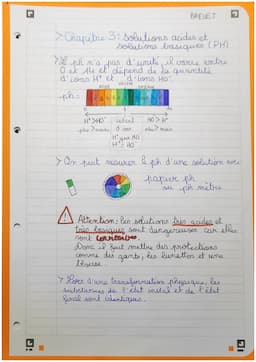 BREVET
> Chapitre 3 : Solutions acides et
solutions basiques (PH)
> Le ph n'a pas d'unité, il varie entre
0 et 14 et dépend de la quantité
d'ions H+ et d'ions HO-
ph =
H+ > HO-
neutre
HO > H+
d'ions
H+ = HO
> On peut mesurer le ph d'une solution avec
papier ph
ou ph mètre
! Attention : les solutions très acides et
très basiques sont dangereuses car elles
sont corrosives.
Donc il faut mettre des protections
comme des gants, les lunettes et une
blouse.
> Lors d'une transformation physique, les
substances de l'état initial et de l'état
final sont identiques.